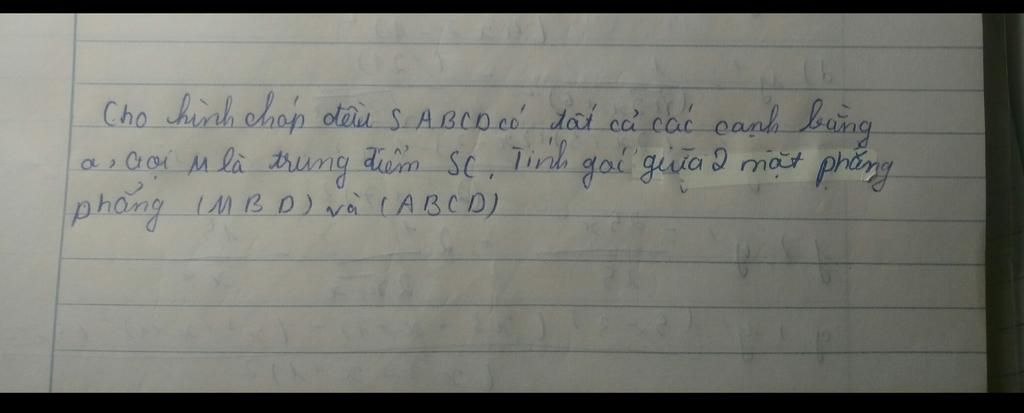 Cho hình chóp đều S ABCD có tất cả các cạnh bằng
a, Gọi M là trung điểm SC. Tính gói giữa 2 mặt phẳng
phẳng (MBD) và (ABCD)